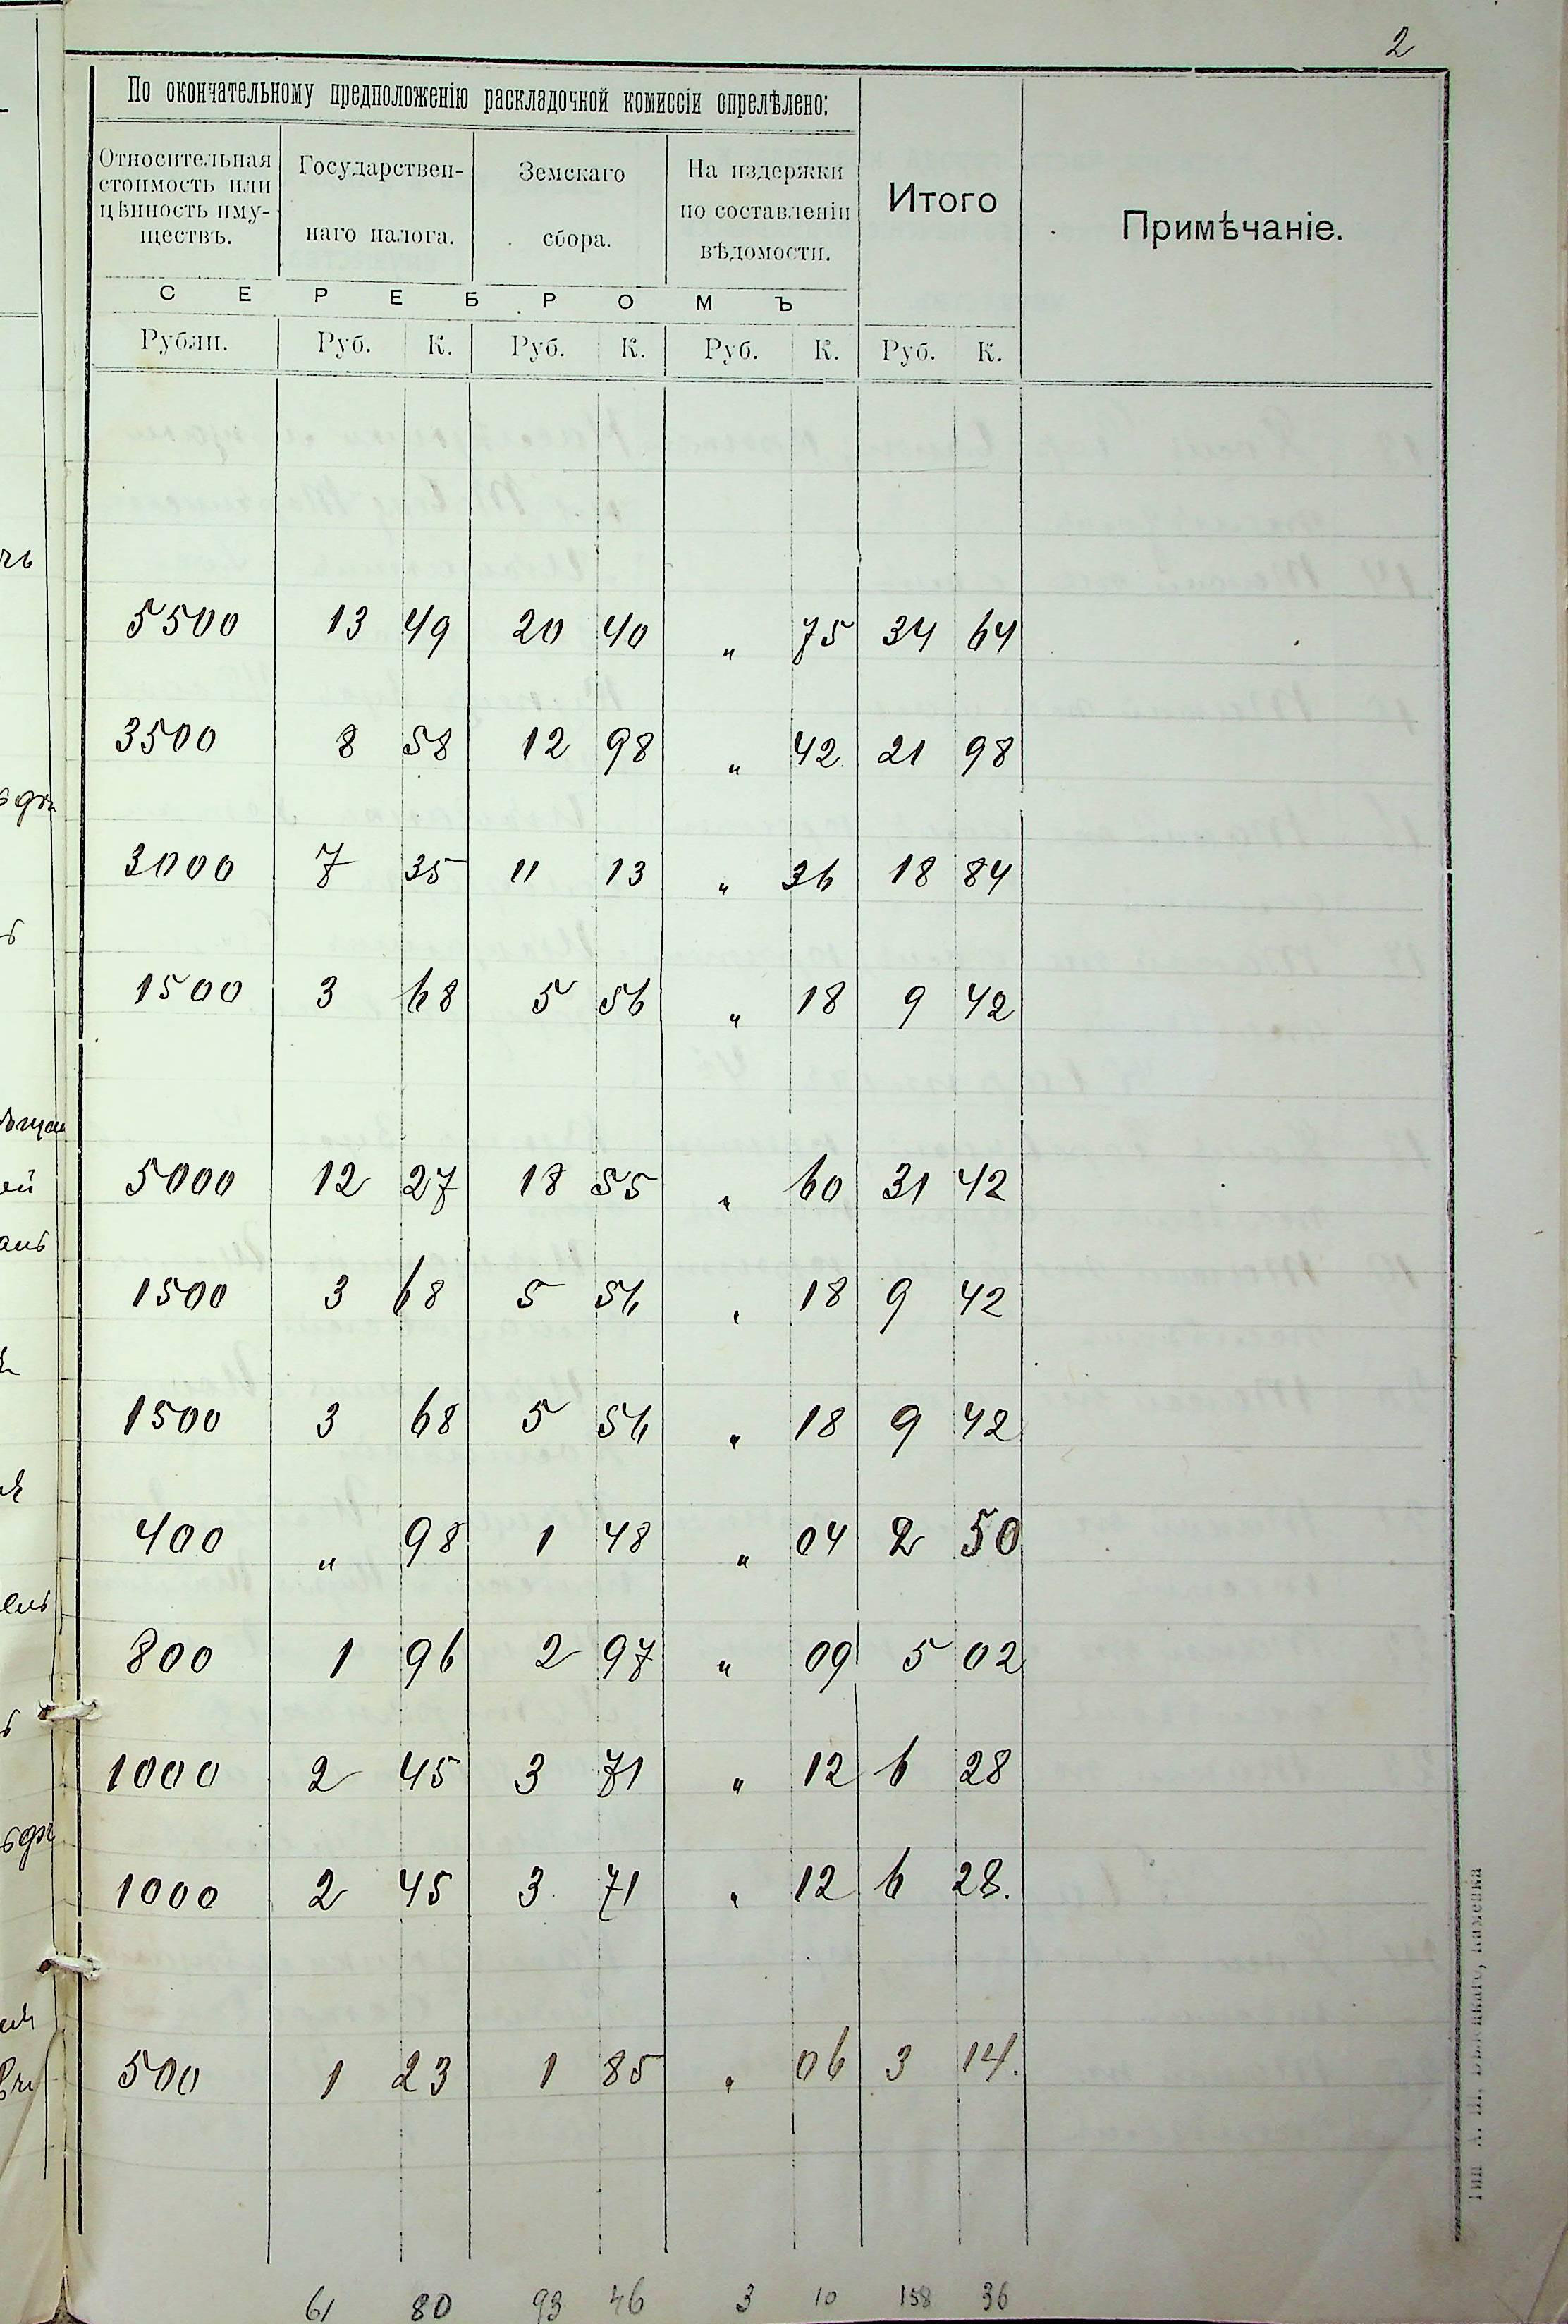 2
По окончательному предположенію раскладочной комиссіи опрелѣлено:
Относительная стоимость или цѣнность иму-ществъ.
Государствен-наго налога.
Земскаго сбора.
На издержки по составленіи вѣдомости.
Итого
Примѣчаніе.
С Е Р Е Б Р О М Ъ
Рубли. Руб. К. Руб. К. Руб. К. Руб. К.
5500 13 49 20 40 „ 75 34 64
3500 8 58 12 98 „ 42 21 98
3000 7 35 11 13 „ 36 18 84
1500 3 68 5 56 „ 18 9 42
5000 12 27 18 55 „ 60 31 42
1500 3 68 5 56 „ 18 9 42
1500 3 68 5 56 „ 18 9 42
400 „ 98 1 48 „ 04 2 50
800 1 96 2 97 „ 09 5 02
1000 2 45 3 71 „ 12 6 28
1000 2 45 3 71 „ 12 6 28.
500 1 23 1 85 „ 06 3 14.
61 80 93 46 3 10 158 36